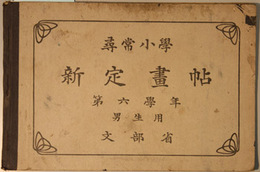 尋常小學
新定畫帖
第六學年
男生用
文部省